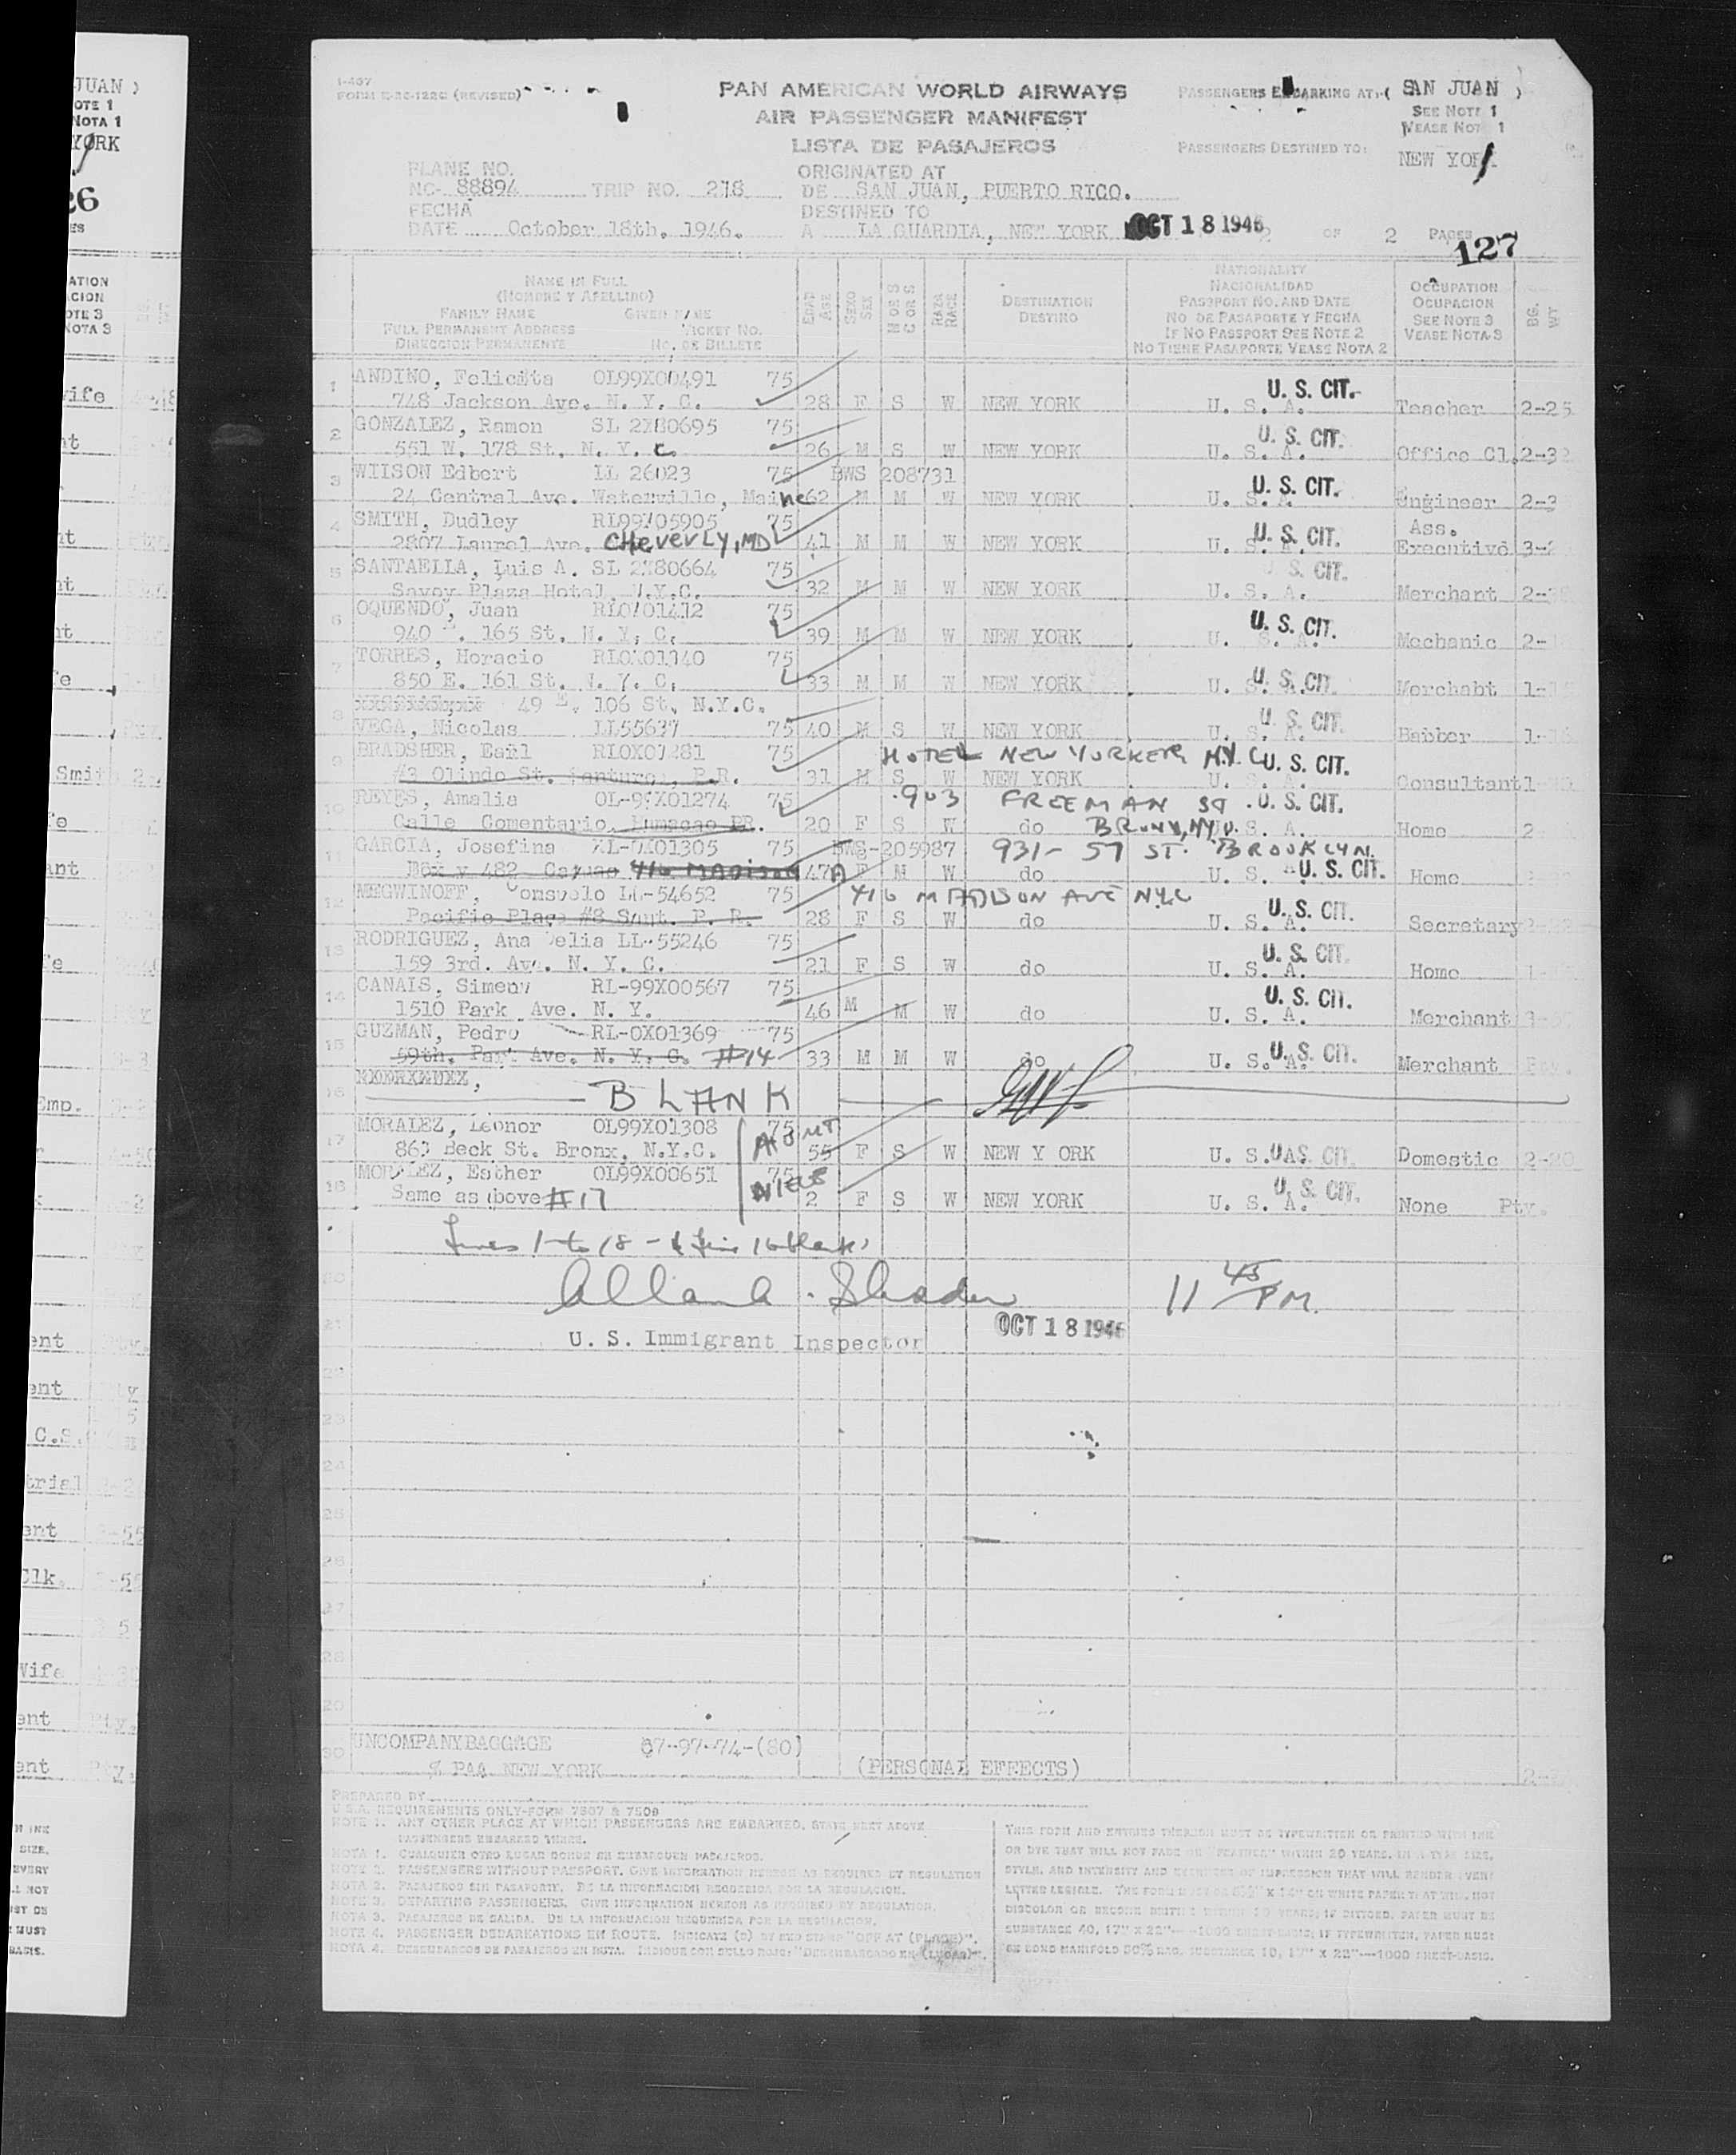 I-407
FORM E-26-122C (REVISED)
PAN AMERICAN WORLD AIRWAYS
AIR PASSENGER MANIFEST
LISTA DE PASAJEROS
PASSENGERS EMBARKING AT:-( SAN JUAN )
SEE NOTE 1
VEASE NOTA 1
PASSENGERS DESTINED TO: NEW YORK
PLANE NO.
NC- 88894 TRIP NO. 218
ORIGINATED AT
DE SAN JUAN, PUERTO RICO.
FECHA
DATE October 18th, 1946.
DESTINED TO
A LA GUARDIA, NEW YORK OCT 18 1946 2 OF 2 PAGES
127
NAME IN FULL
(NOMBRE Y APELLIDO)
FAMILY NAME GIVEN NAME
FULL PERMANENT ADDRESS TICKET NO.
DIRECCION PERMANENTE NO. DE BILLETE
EDAD AGE
SEXO SEX
M OR S
C OR S
RAZA RACE
DESTINATION
DESTINO
NATIONALITY
NACIONALIDAD
PASSPORT NO. AND DATE
NO. DE PASAPORTE Y FECHA
IF NO PASSPORT SEE NOTE 2
NO TIENE PASAPORTE VEASE NOTA 2
OCCUPATION
OCUPACION
SEE NOTE 3
VEASE NOTA 3
BG. WT
1 ANDINO, Felicita OL99X00491 75 U. S. CIT.
748 Jackson Ave. N. Y. C. 28 F S W NEW YORK U. S. A. Teacher 2-25
2 GONZALEZ, Ramon SL 2X80695 75 U. S. CIT.
551 W. 178 St. N. Y. C. 26 M S W NEW YORK U. S. A. Office Cl. 2-32
3 WILSON Edbert LL 26023 75 BWS 208731 U. S. CIT.
24 Central Ave. Waterville, Maine 62 M M W NEW YORK U. S. A. Engineer 2-3
4 SMITH, Dudley RL99X05905 75 U. S. CIT. Ass.
2807 Laurel Ave. CHEVERLY, MD 41 M M W NEW YORK U. S. A. Executive 3-2
5 SANTAELLA, Luis A. SL 2X80664 75 U. S. CIT.
Savoy Plaza Hotel, N.Y.C. 32 M M W NEW YORK U. S. A. Merchant 2-
6 OQUENDO, Juan RLOX01412 75 U. S. CIT.
940 E. 165 St. N. Y. C. 39 M M W NEW YORK U. S. A. Mechanic 2-
7 TORRES, Horacio RLOX01340 75 U. S. CIT.
850 E. 161 St. N. Y. C. 33 M M W NEW YORK U. S. A. Merchabt 1-
8 49 E. 106 St. N.Y.C. U. S. CIT.
VEGA, Nicolas LL55637 75 40 M S W NEW YORK U. S. A. Babber 1-
9 BRADSHER, Earl RLOX01281 75 HOTEL NEW YORKER N.Y.C U. S. CIT.
#3 Olindo St. Santurce, P.R. 31 M S W NEW YORK U. S. A. Consultant 1-
10 REYES, Amalia OL-99X01274 75 903 FREEMAN ST. U. S. CIT.
Calle Comentario, Humacao PR. 20 F S W do BRONX, NY U. S. A. Home 2
11 GARCIA, Josefina XL-0X01305 75 BWS-205987 931- 57 ST. BROOKLYN.
Box 482 Caguas 416 MADISON A 47 F M W do U. S. A U. S. CIT. Home
12 MEGWINOFF, Consuelo LL-54652 75 416 MADISON AVE NYC U. S. CIT.
Pacific Place #8 Sant. P. R. 28 F S W do U. S. A. Secretary
13 RODRIGUEZ, Ana Delia LL-55246 75 U. S. CIT.
159 3rd. Ave. N. Y. C. 21 F S W do U. S. A. Home 1-
14 CANALS, Simeny RL-99X00567 75 U. S. CIT.
1510 Park Ave. N. Y. 46 M M W do U. S. A. Merchant
15 GUZMAN, Pedro RL-0X01369 75 U. S. CIT.
59th. Par' Ave. N. Y. C. #14 33 M M W do U. S. A. Merchant
16 BLANK
17 MORALEZ, Leonor OL99X01308 75 AUNT
863 Beck St. Bronx, N.Y.C. 55 F S W NEW Y ORK U. S. A. U. S. CIT. Domestic 2-20
18 MORALEZ, Esther OL99X00651 75 NIECE U. S. CIT.
Same as above #17 2 F S W NEW YORK U. S. A. None Pty.
Lines 1 to 18 - (Line 16 blank)
Allan A. Shader 11 45 PM.
U. S. Immigrant Inspector OCT 18 1946
20
21
22
23
24
25
26
27
28
29
30 UNCOMPANYBAGGAGE 67-97-74-(80)
% PAA NEW YORK (PERSONAL EFFECTS)
PREPARED BY
U.S.A. REQUIREMENTS ONLY-FORM 7507 & 7509
NOTE 1. ANY OTHER PLACE AT WHICH PASSENGERS ARE EMBARKED, STATE NEXT ABOVE
PASSENGERS EMBARKED THERE.
NOTA 1. CUALQUIER OTRO LUGAR DONDE SE EMBARQUEN PASAJEROS.
NOTE 2. PASSENGERS WITHOUT PASSPORT. GIVE INFORMATION HEREON AS REQUIRED BY REGULATION
NOTA 2. PASAJEROS SIN PASAPORTE. DE LA INFORMACION REQUERIDA POR LA REGULACION.
NOTE 3. DEPARTING PASSENGERS. GIVE INFORMATION HEREON AS REQUIRED BY REGULATION.
NOTA 3. PASAJEROS DE SALIDA. DE LA INFORMACION REQUERIDA POR LA REGULACION.
NOTE 4. PASSENGER DEBARKATIONS EN ROUTE. INDICATE (D) BY RED STAMP "OFF AT (PLACE)".
NOTA 4. DESEMBARCOS DE PASAJEROS EN RUTA. INDIQUE CON SELLO ROJO: "DESEMBARCADO EN (LUGAR)".
THIS FORM AND ENTRIES THEREON MUST BE TYPEWRITTEN OR PRINTED WITH INK
OR DYE THAT WILL NOT FADE OR "FEATHER" WITHIN 20 YEARS, IN A TYPE SIZE,
STYLE, AND INTENSITY AND EVENNESS OF IMPRESSION THAT WILL RENDER EVERY
LETTER LEGIBLE. THE FORM MUST BE 8½" X 14" ON WHITE PAPER THAT WILL NOT
DISCOLOR OR BECOME BRITTLE WITHIN 20 YEARS; IF DITTOED, PAPER MUST BE
SUBSTANCE 40, 17" X 22"—1000 SHEET-BASIS; IF TYPEWRITTEN, PAPER MUST
BE BOND MANIFOLD 50% RAG, SUBSTANCE 10, 17" X 22"—1000 SHEET-BASIS.